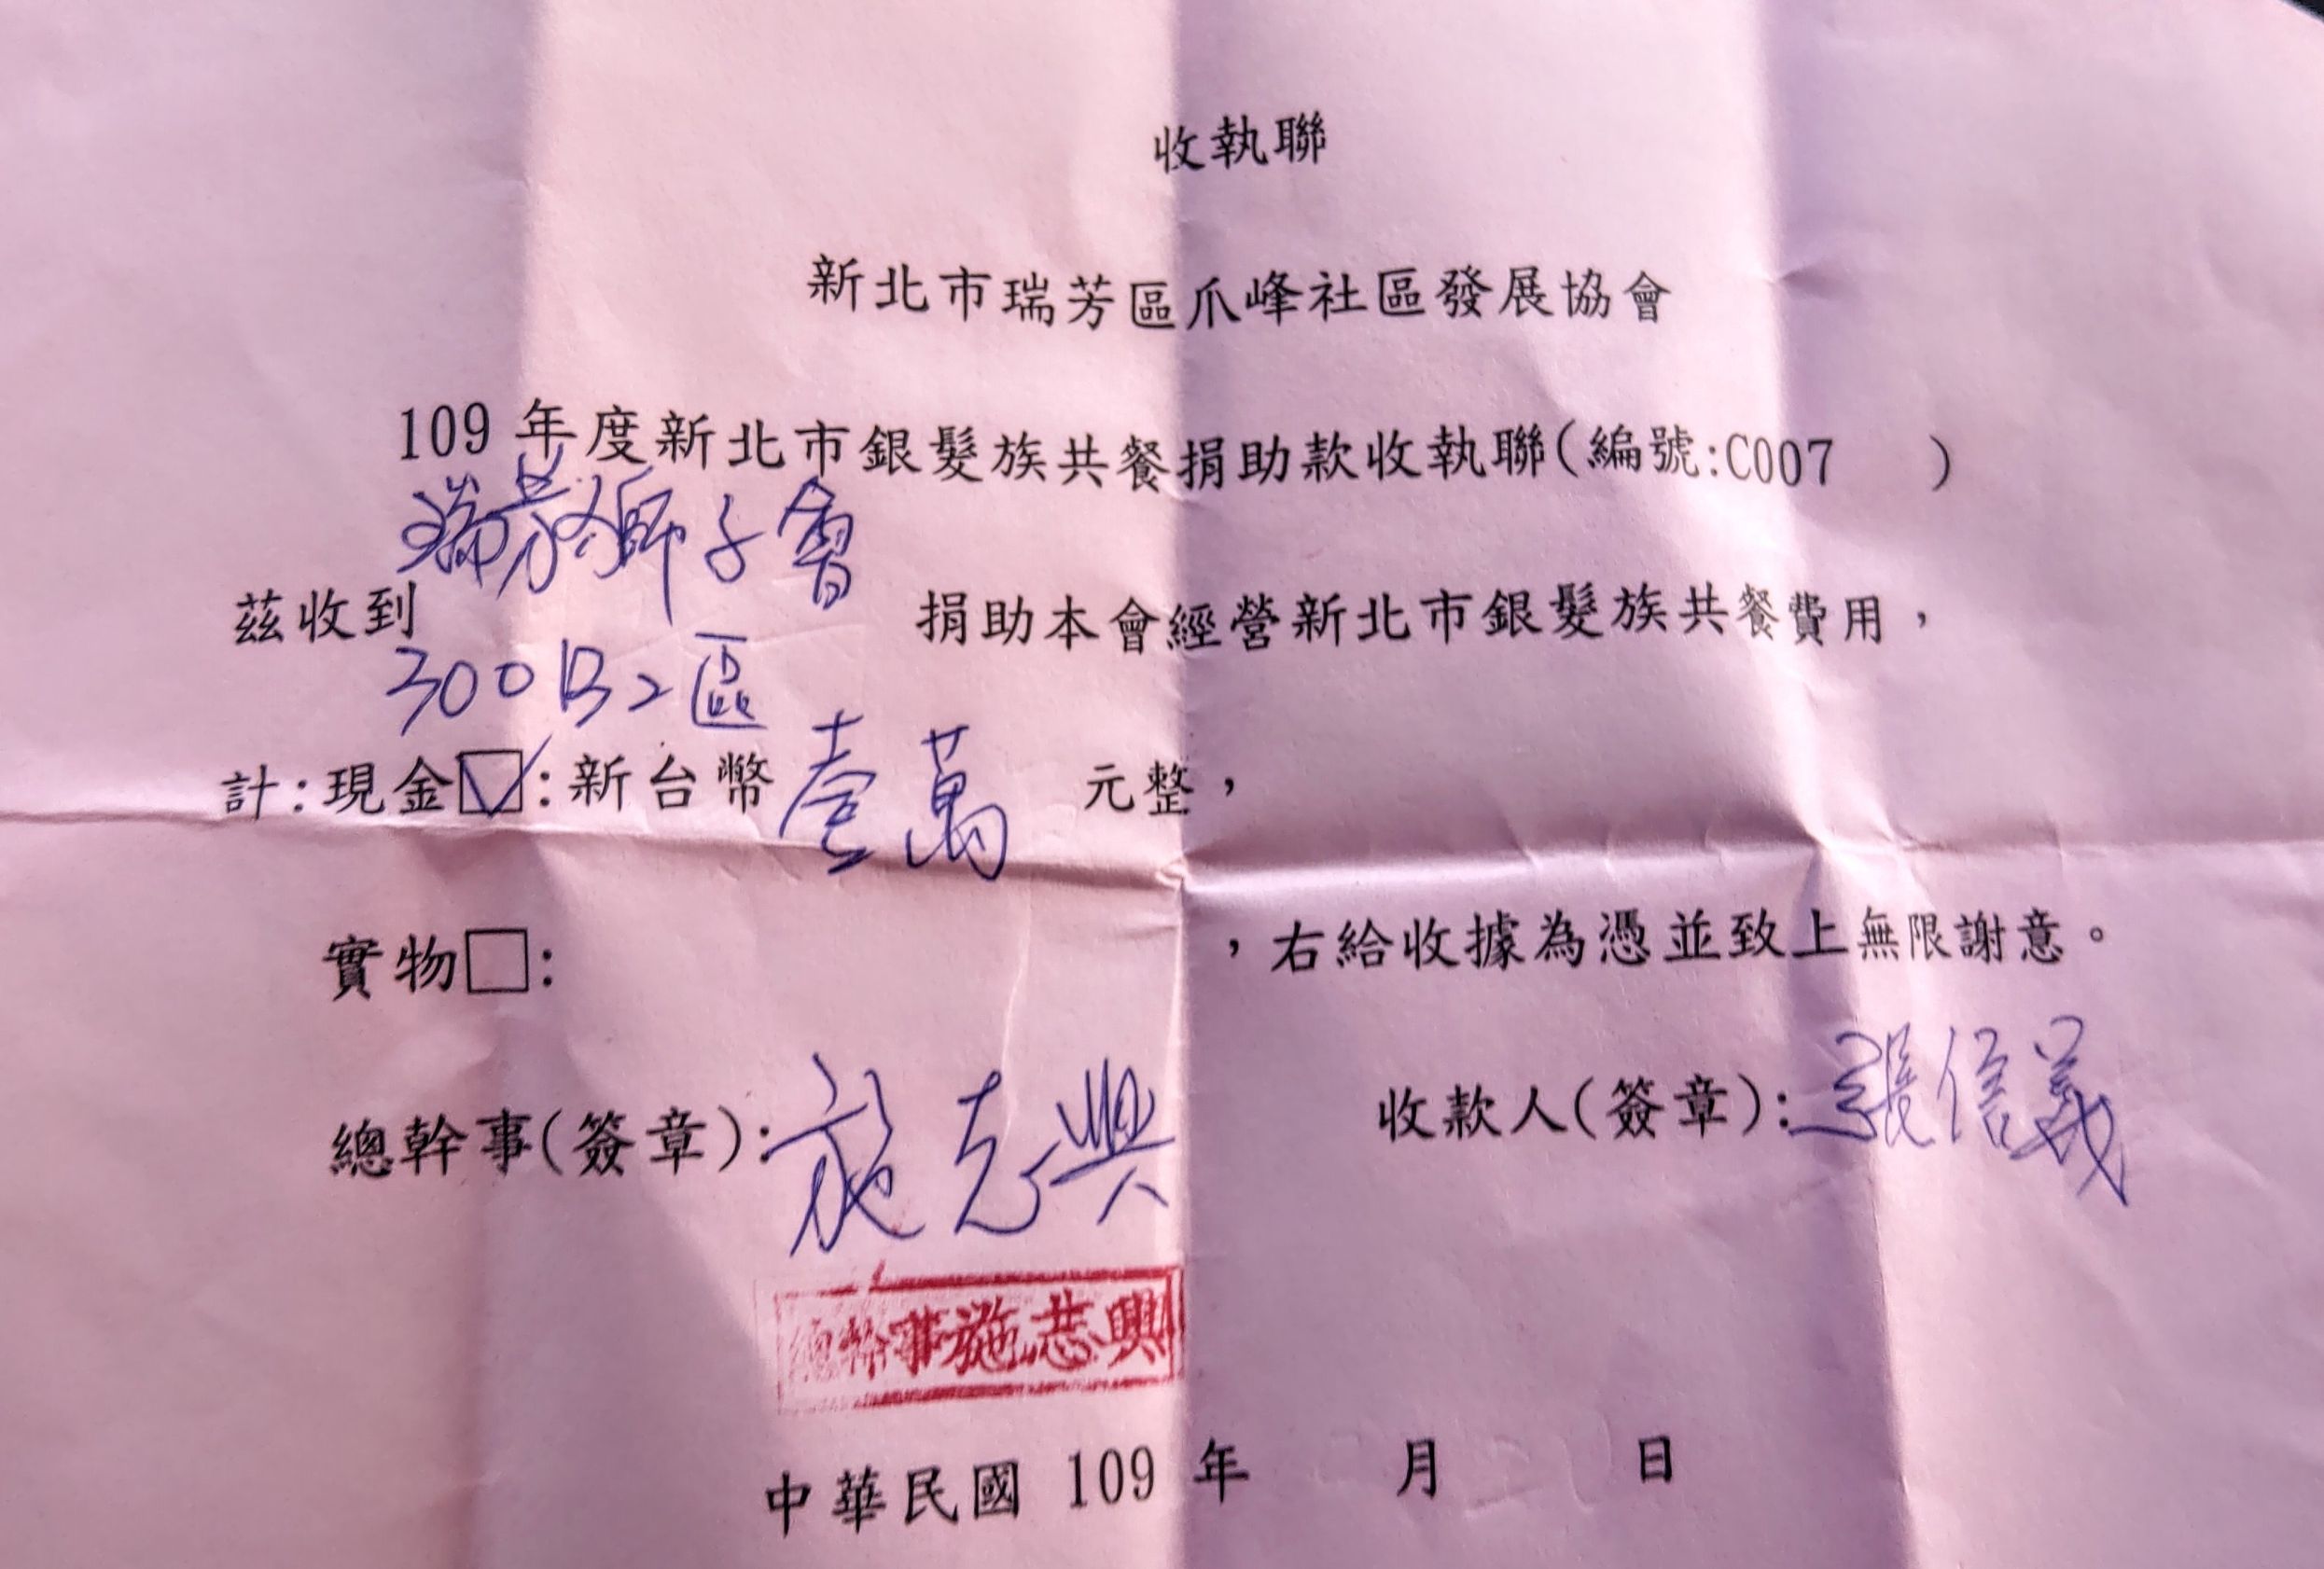 收執聯
新北市瑞芳區爪峰社區發展協會
109 年度新北市銀髮族共餐捐助款收執聯(編號:C007 )
瑞芳獅子會
茲收到 捐助本會經營新北市銀髮族共餐費用，
300B2區
計:現金☑:新台幣壹萬 元整，
實物□: ，右給收據為憑並致上無限謝意。
總幹事(簽章):施志興 收款人(簽章):張信義
總幹事施志興
中華民國 109 年 月 日